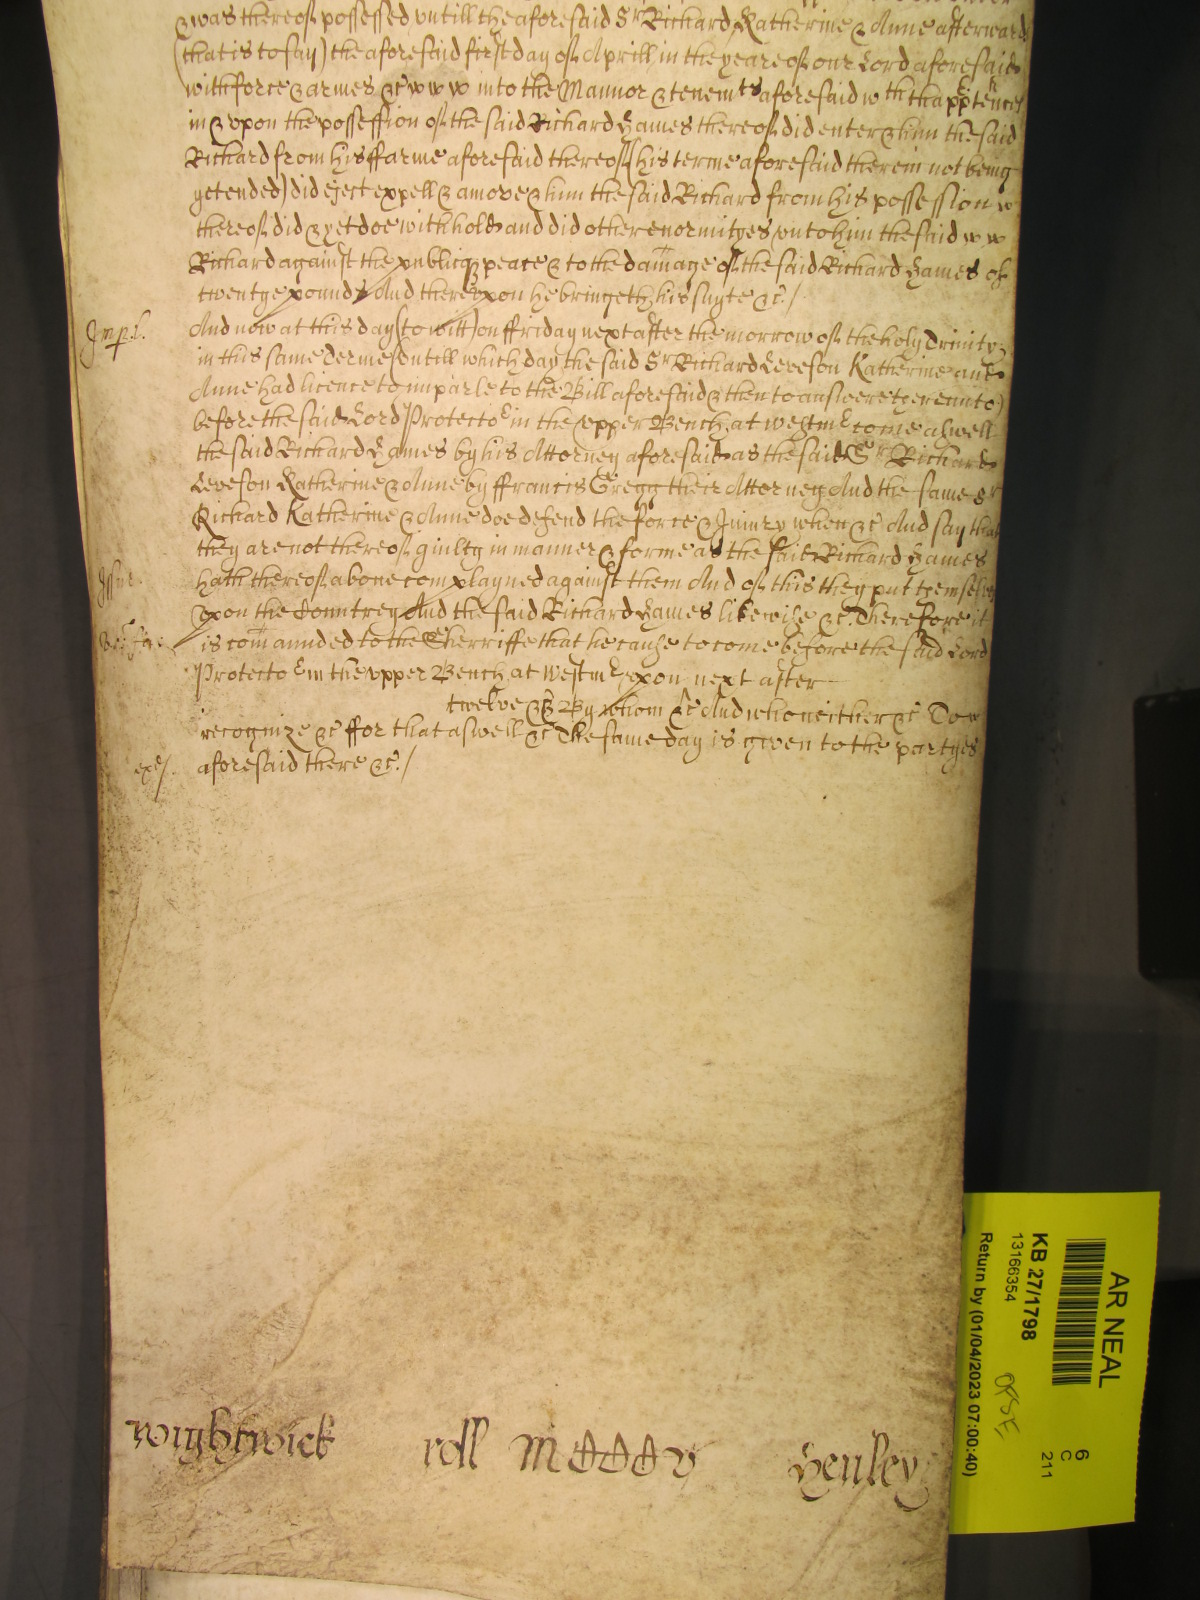 & was thereof possessed untill the aforesaid Sr Richard Katherine & Anne afterwards
(that is to say) the aforesaid first day of Aprill in the yeare of our Lord aforesaid
with force & armes &c into the Mannor & tenemts aforesaid wth thapptences
in & upon the possession of the said Richard James thereof did enter & him the said
Richard from his ffarme aforesaid thereof (his terme aforesaid therein not being
yet ended) did eject expell & amove & him the said Richard from his possession
thereof did & yet doe withhold and did other enormityes unto him the said
Richard against the publicq peace & to the damage of the said Richard James of
twenty pounds And thereupon he bringeth his suyte &c./
Impl.
And now at this day (to witt) on ffriday next after the morrow of the holy Trinity
in this same Terme (untill which day the said Sr Richard Leveson Katherine and
Anne had licence to imparle to the Bill aforesaid & then to answere thereunto)
before the said Lord Protector in the upper Bench at Westmr come aswell
the said Richard James by his Attorney aforesaid as the said Sr Richard
Leveson Katherine & Anne by ffrancis Gregg their Attorney And the same Sr
Richard Katherine & Anne doe defend the force & Injury when &c And say that
they are not thereof guilty in manner & forme as the said Richard James
Issue.
hath thereof above complayned against them And of this they put themselves
upon the Countrey And the said Richard James likewise &c. Therefore it
is comaunded to the Sherriffe that he cause to come before the said Lord
Protector in the upper Bench at Westmr upon next after
twelve &c By whom &c And who neither &c To
recognize &c ffor that aswell &c The same day is given to the partyes
aforesaid there &c./
Wightwick roll MDDDV Henley
AR NEAL
KB 27/1798
13166354
Return by (01/04/2023 07:00:40)
6
C
211